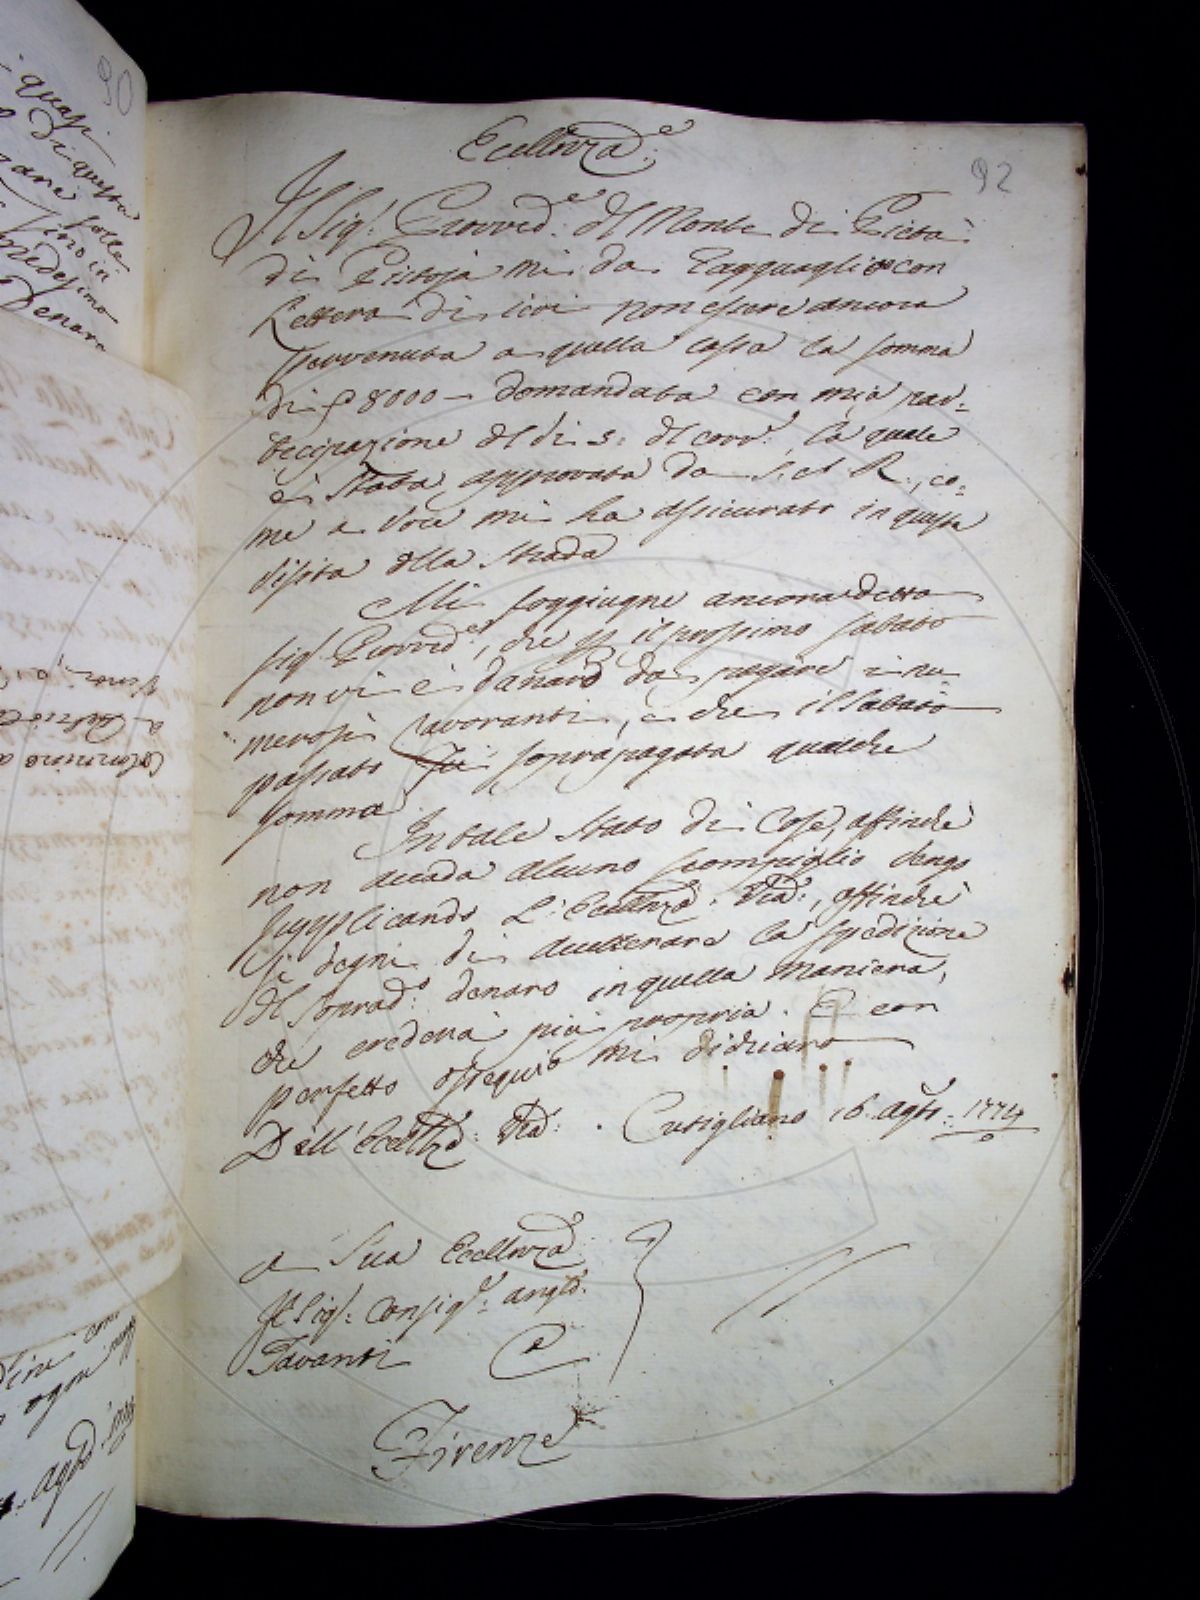 92
Ecellenza
Il Sig.r Provved.e del Monte di Pietà
di Pistoja mi dà ragguaglio con
Lettera di ieri non essere ancora
pervenuta a quella cassa la somma
di 8000 – domandata con mia par-
tecipazione del dì 5: del corr.e, la quale
è stata approvata da S. A. R., co-
me a voce mi ha assicurato in questa
visita della strada
Mi soggiugne ancora detto
Sig.r Provved.e, che p il prossimo sabato
non vi è danaro da pagare i nu-
merosi lavoranti, e che il sabato
passato fù soprapagata qualche
somma
In tale stato di cose, affinchè
non accada alcuno scompiglio vengo
supplicando L'Ecellnza. Vra:, affinchè
si degni di accellerare la spedizione
del soprad.o denaro in quella maniera,
che crederà più propria. E con
perfetto ossequio mi dichiaro
Dell'Ecellza: Vra: . Cutigliano 16. Agto: 1774
A Sua Ecellenza
Il Sig.r: Consig.e: Angl.o:
Tavanti
Firenze
90
quasi
di questa
medesimo
Denaro
ogni